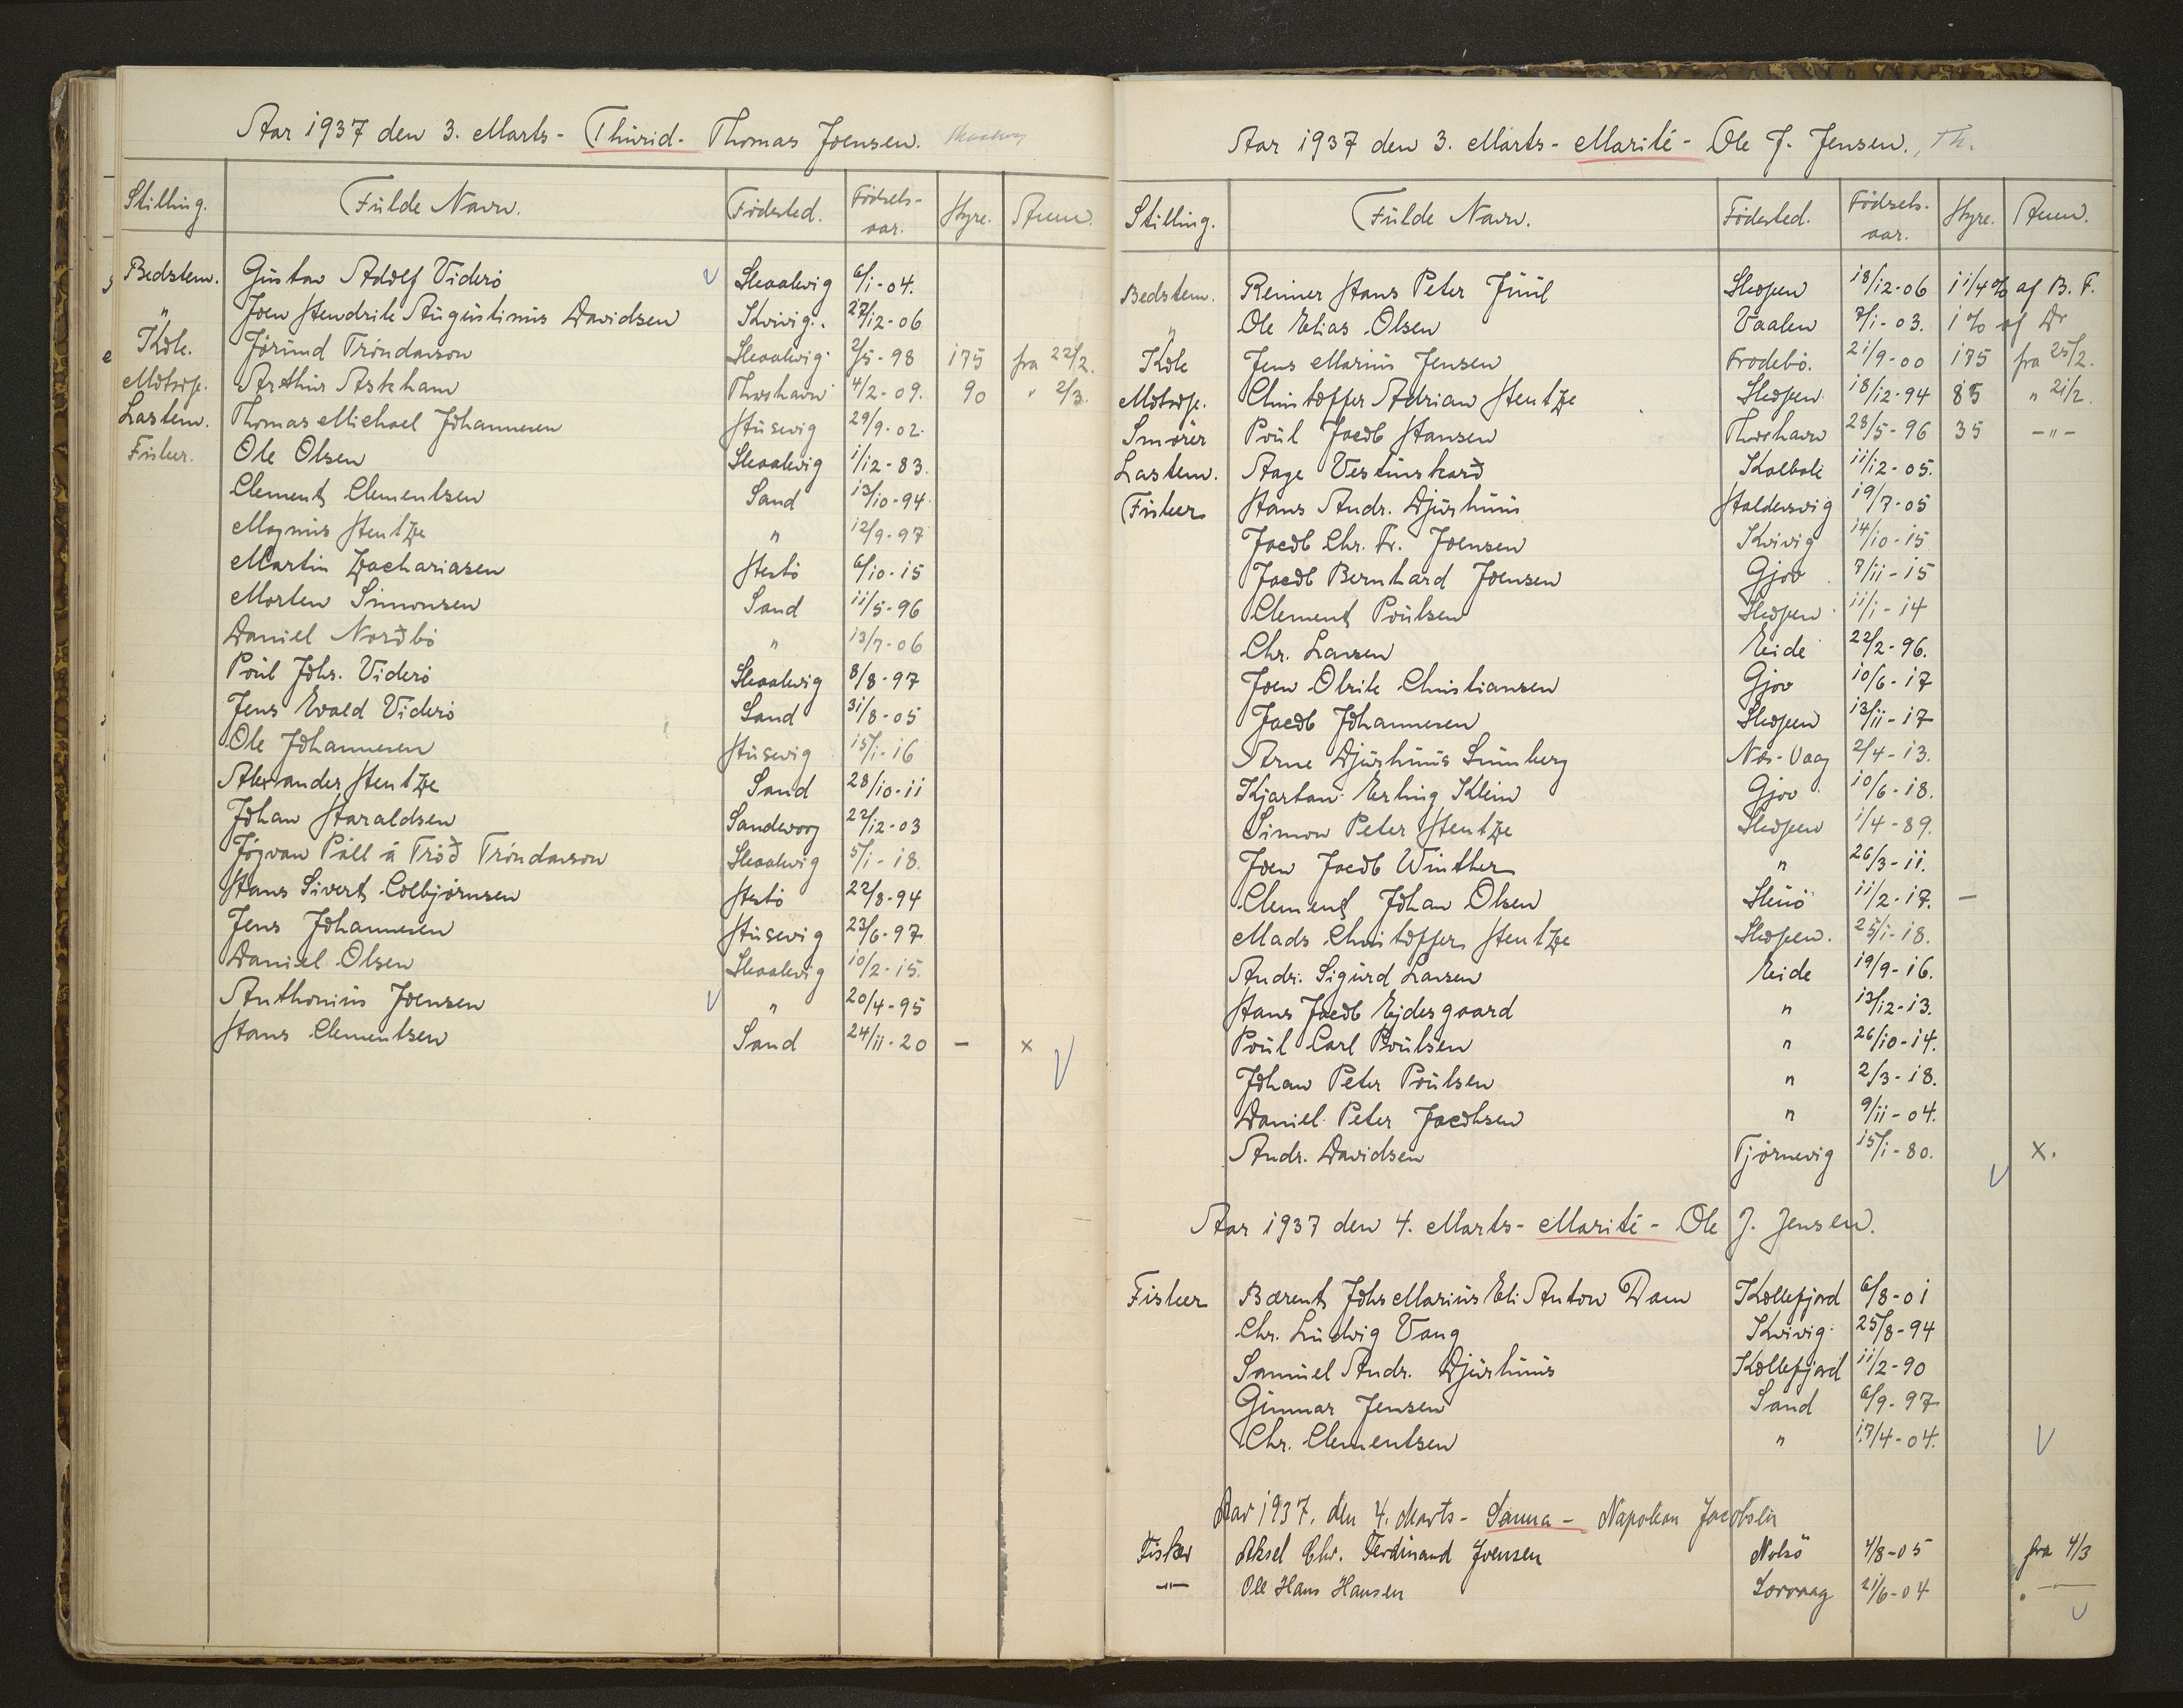 Aar 1937 den 3. Marts - Thurid - Thomas Joensen.
Stilling. Fulde Navn. Födested. Födsels-aar. Hyre. Anm.
Bedstem. Gustav Adolf Viderö Skaalevig 6/1-04.
" Joen Hendrik Augustinus Davidsen Kvivig. 27/12-06
Kok. Jörund Tróndarson Skaalevig 2/5-98 175 fra 22/2.
Motorp. Arthur Askham Thorshavn 4/2-09. 90 " 2/3.
Lastem. Thomas Michael Johannesen Husevig 29/9-02.
Fisker. Ole Olsen Skaalevig 1/12-83.
Clement Clementsen Sand 13/10-94.
Magnus Hentze " 12/9-97
Martin Zachariasen Hestö 6/10-15
Morten Simonsen Sand 11/5-96
Daniel Norðbö " 13/7-06
Poul Johs. Viderö Skaalevig 8/8-97
Jens Evald Viderö Sand 31/8-05
Ole Johannesen Husevig 15/1-16
Alexander Hentze Sand 28/10-11
Johan Haraldsen Sandevaag 22/12-03
Jógvan Páll á Tröð Tróndarson Skaalevig 5/1-18.
Hans Sivert Colbjörnsen Hestö 22/8-94
Jens Johannesen Husevig 23/6-97
Daniel Olsen Skaalevig 10/2-15.
Anthonius Joensen " 20/4-95
Hans Clementsen Sand 24/11-20 - x
Aar 1937 den 3. Marts - Marité - Ole J. Jensen., Th.
Stilling. Fulde Navn. Födested. Födsels-aar. Hyre. Anm.
Bedstem. Reimer Hans Peter Juul Skopen 18/12-06 1 1/4% af B. F.
" Ole Elias Olsen Vaalen 7/1-03. 1% af Do
Kok Jens Marius Jensen Frodebö. 21/9-00 175 fra 25/2.
Motorp. Christoffer Adrian Hentze Skopen 18/12-94 85 " 21/2.
Smörer Poul Jacob Hansen Thorshavn 28/5-96 35 -"-
Lastem. Aage Vesturskarð Kolbak 11/12-05.
Fisker Hans Andr. Djurhuus Haldersvig 19/7-05
Jacob Chr. Fr. Joensen Kvivig 14/10-15
Jacob Bernhard Joensen Gjov 7/11-15
Clement Poulsen Skopen 11/1-14
Chr. Larsen Eide 22/2-96.
Joen Olrik Christiansen Gjov 10/6-17
Jacob Johannesen Skopen 13/11-17
Arne Djurhuus Sumberg Nès-Vaag 2/4-13.
Kjartan Erling Klein Gjov 10/6-18.
Simon Peter Hentze Skopen 1/4-89.
Joen Jacob Winther " 26/3-11.
Clement Johan Olsen Skuö 11/2-17. -
Mads Christoffer Hentze Skopen. 25/1-18.
Andr. Sigurd Larsen Eide 19/9-16.
Hans Jacob Ejdesgaard " 13/12-13.
Poul Carl Poulsen " 26/10-14.
Johan Peter Poulsen " 2/3-18.
Daniel Peter Jacobsen " 9/11-04.
Andr. Davidsen Tjörnevig 15/1-80. x.
Aar 1937 den 4. Marts - Marité - Ole J. Jensen.
Fisker Bærent Johs Marius Eli Anton Dam Kollefjord 6/8-01
Chr. Ludvig Vang Kvivig 25/8-94
Samuel Andr. Djurhuus Kollefjord 11/2-90
Gunnar Jensen Sand 6/9-97
Chr. Clementsen " 17/4-04.
Aar 1937. den 4. Marts - Sanna - Napoleon Jacobsen
Fisker Aksel Chr. Ferdinand Joensen Nolsö 4/8-05 fra 4/3
-"- Ole Hans Hansen Sorvaag 21/6-04